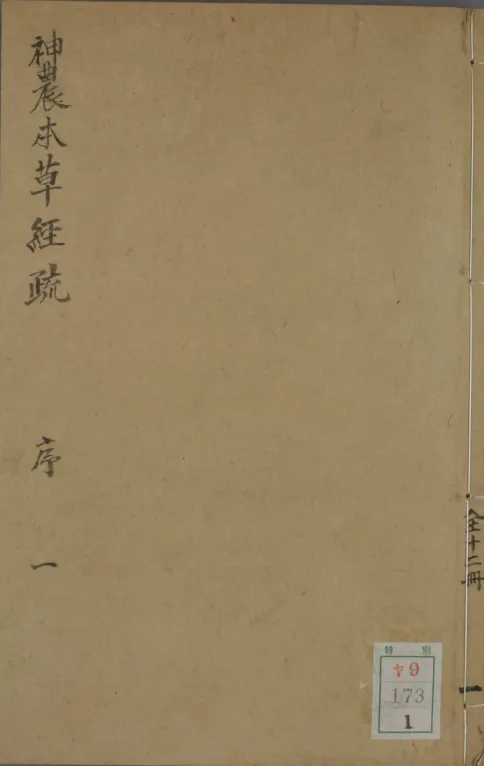 神農本草經疏
序
一
全十二冊
一
特別
ヤ9
173
1